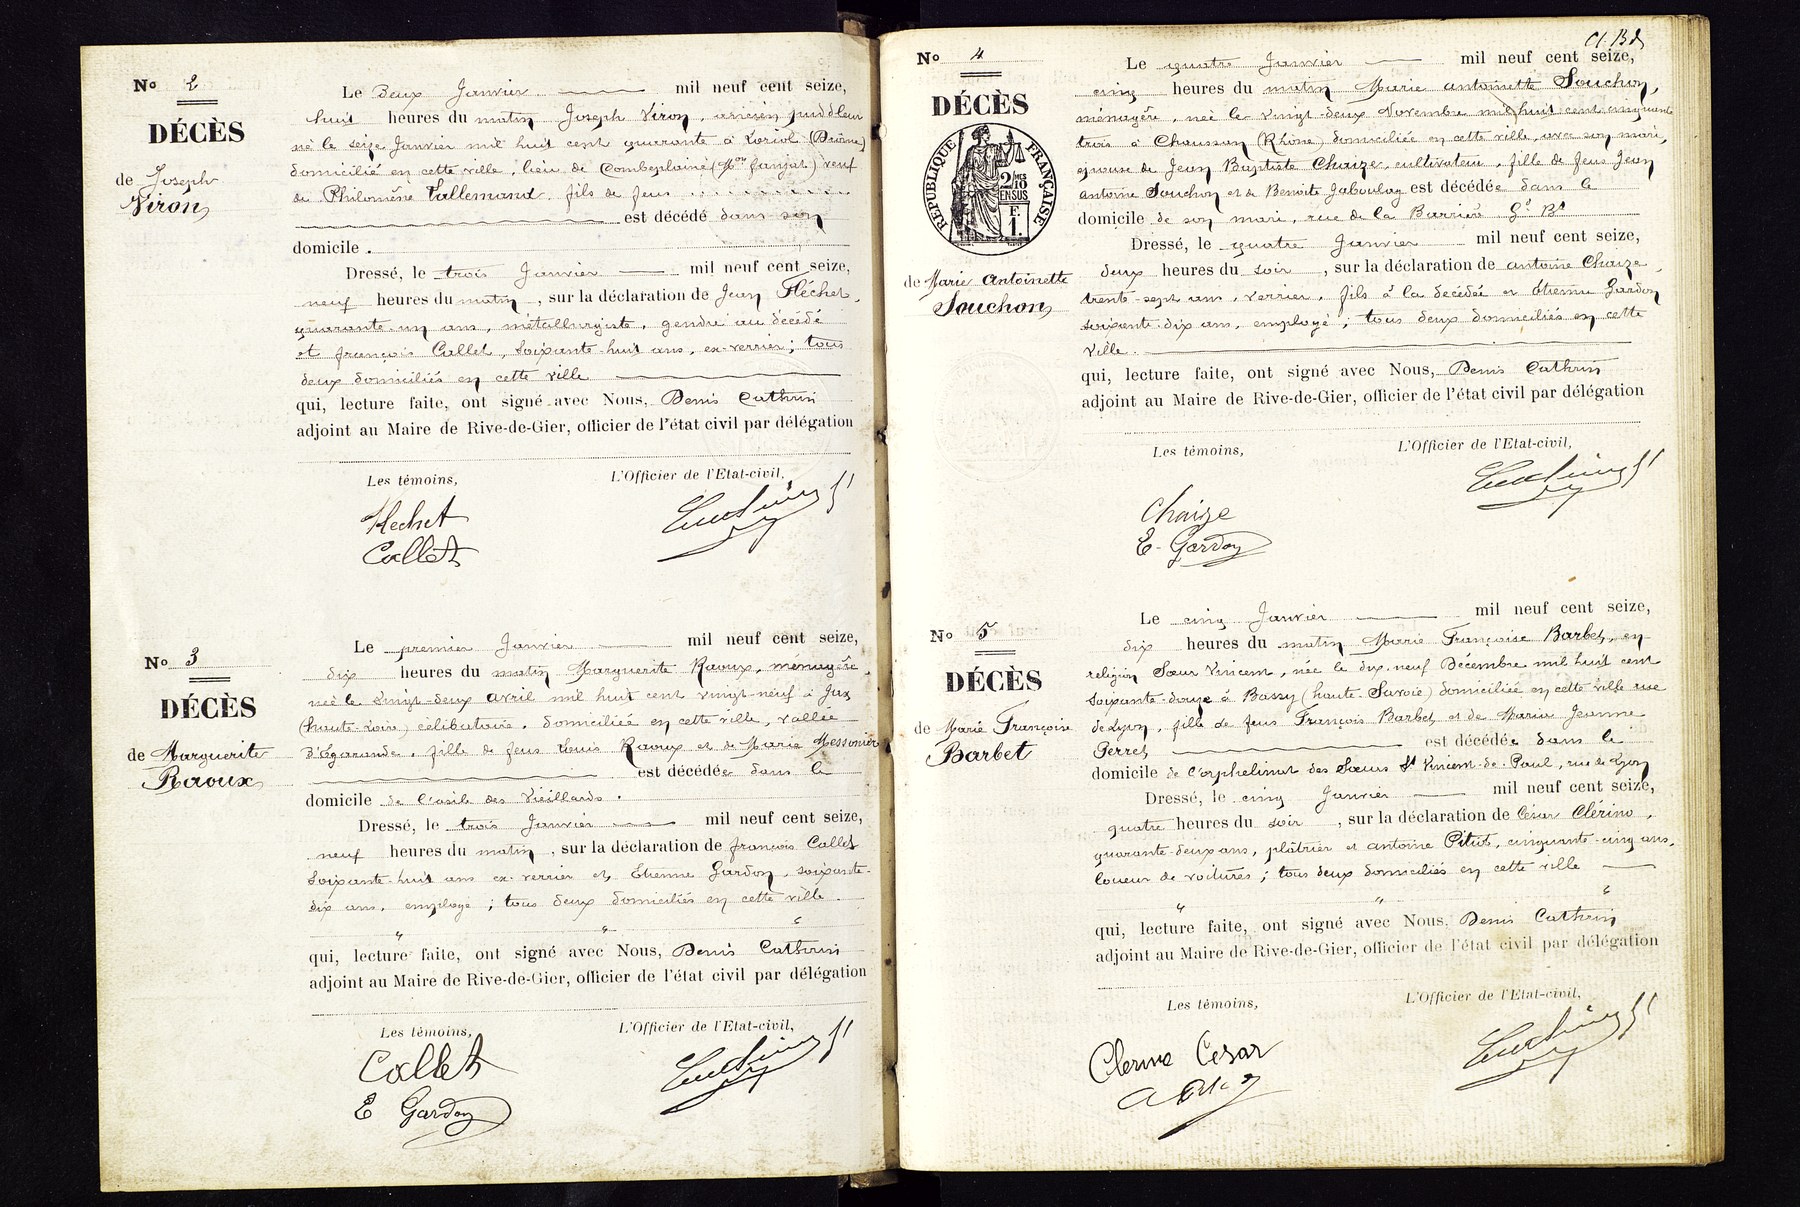 No 2
DÉCÈS
de Joseph
Viron
Le Deux Janvier mil neuf cent seize,
huit heures du matin Joseph Viron, ancien puddleur
né le seize Janvier mil huit cent quarante à Loriol (Drôme)
domicilié en cette ville, lieu de Combeplaine (Mon Janjat) veuf
de Philomène Vallemand, fils de feus
est décédé dans son
domicile.
Dressé, le trois Janvier mil neuf cent seize,
neuf heures du matin, sur la déclaration de Jean Fléchet,
quarante-un ans, métallurgiste, gendre au décédé
et françois Collet, soixante-huit ans, ex-verrier; tous
deux domiciliés en cette ville
qui, lecture faite, ont signé avec Nous, Denis Cathrin
adjoint au Maire de Rive-de-Gier, officier de l'état civil par délégation
Les témoins,
L'Officier de l'Etat-civil,
Flechet
Collet
No 3
DÉCÈS
de Marguerite
Raoux
Le premier Janvier mil neuf cent seize,
dix heures du matin Marguerite Raoux, ménagère
née le vingt-deux avril mil huit cent vingt-neuf à Jux
(haute-Loire) célibataire, domiciliée en cette ville, vallée
d'Egarande, fille de feus Louis Raoux et de Marie Messonier
est décédée dans le
domicile de l'asile des Vieillards.
Dressé, le trois Janvier mil neuf cent seize,
neuf heures du matin, sur la déclaration de françois Collet
soixante-huit ans ex-verrier et Etienne Gardon, soixante-
dix ans, employé; tous deux domiciliés en cette ville.
qui, lecture faite, ont signé avec Nous, Denis Cathrin
adjoint au Maire de Rive-de-Gier, officier de l'état civil par délégation
Les témoins,
L'Officier de l'Etat-civil,
Collet
E Gardon
No 4
DÉCÈS
RÉPUBLIQUE FRANÇAISE
2/10 EN SUS
F.
1.
de Marie Antoinette
Souchon
Le quatre Janvier mil neuf cent seize,
cinq heures du matin Marie antoinette Souchon,
ménagère, née le vingt-deux Novembre mil huit cent cinquante
trois à Chaussan (Rhône) domiciliée en cette ville, avec son mari,
épouse de Jean Baptiste Chaize, cultivateur, fille de feus Jean
antoine Souchon et de Benoite Jaboulay est décédée dans le
domicile de son mari, rue de la Barrière
Dressé, le quatre Janvier mil neuf cent seize,
deux heures du soir, sur la déclaration de antoine Chaize,
trente-sept ans, verrier, fils à la décédée et Etienne Gardon
soixante-dix ans, employé; tous deux domiciliés en cette
ville.
qui, lecture faite, ont signé avec Nous, Denis Cathrin
adjoint au Maire de Rive-de-Gier, officier de l'état civil par délégation
Les témoins,
L'Officier de l'Etat-civil,
Chaize
E. Gardon
No 5
DÉCÈS
de Marie Françoise
Barbet
Le cinq Janvier mil neuf cent seize,
dix heures du matin Marie Françoise Barbet, en
religion Sœur Vincent, née le dix-neuf Décembre mil huit cent
soixante-douze à Bassy (haute-Savoie) domiciliée en cette ville rue
de Lyon, fille de feus François Barbet et de Marie Jeanne
Perret, est décédée dans le
domicile de l'orphelinat des Sœurs St Vincent-de-Paul, rue de Lyon
Dressé, le cinq Janvier mil neuf cent seize,
quatre heures du soir, sur la déclaration de César Clérino,
quarante-deux ans, plâtrier et antoine Pitiot, cinquante-cinq ans,
loueur de voitures; tous deux domiciliés en cette ville
qui, lecture faite, ont signé avec Nous, Denis Cathrin
adjoint au Maire de Rive-de-Gier, officier de l'état civil par délégation
Les témoins,
L'Officier de l'Etat-civil,
Clerino Cesar